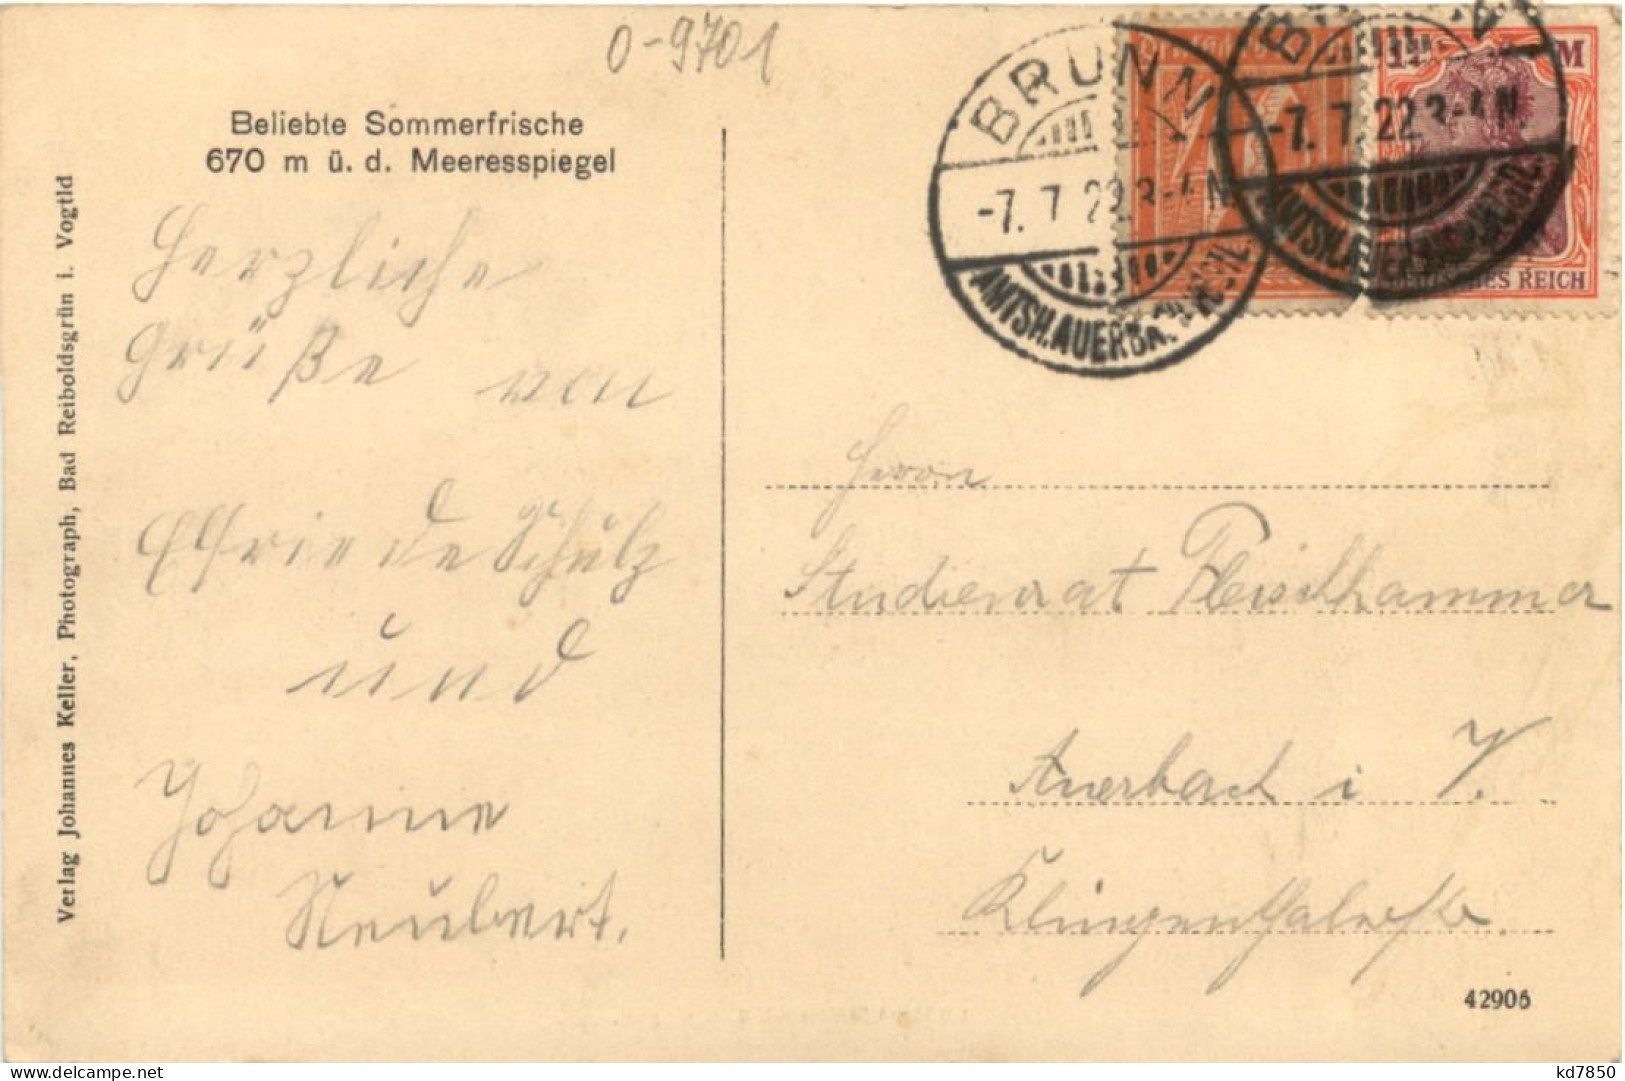 0-9701
Beliebte Sommerfrische
670 m ü. d. Meeresspiegel
Verlag Johannes Keller, Photograph, Bad Reiboldsgrün i. Vogtld
Herzliche
Grüße von
Elfriede Schulz
und
Johanne
Neubert.
BRUNN
-7. 7. 22. 3-4 N
AMTSH. AUERBA.
-7. 7. 22 3-4 N
AMTSH. AUERBA
M
DEUTSCHES REICH
Herrn
Studienrat Fleischhammer
Auerbach i V.
Klingenthalerstr.
42906
kd7850